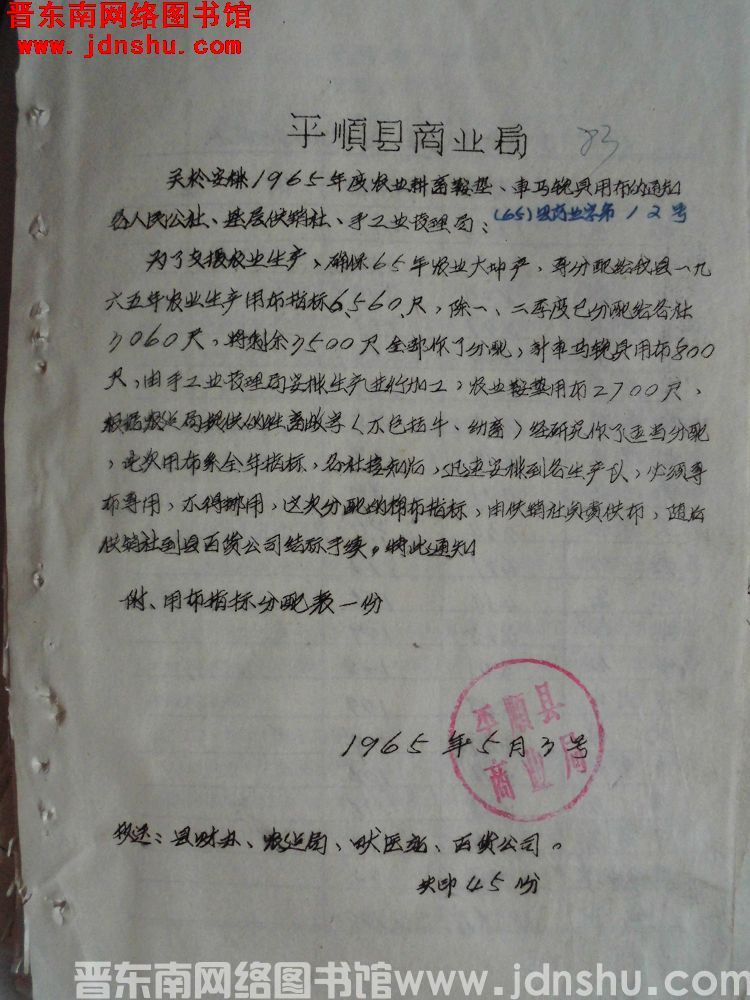 晋东南网络图书馆
www.jdnshu.com
平順县商业局
83
关於安排1965年度农业耕畜鞍垫、車马挽具用布的通知
(65)县商业字第12号
各人民公社、基层供销社、手工业管理局:
为了支援农业生产、确保65年农业大坤产,专分配给我县一九
六五年农业生产用布指标6,560尺,除一、二季度已分配给各社
3060尺,将剩余3500尺全部作了分配,計車马挽具用布800
尺,由手工业管理局安排生产进行加工,农业鞍垫用布2700尺,
根据农业局提供的牲畜数字(不包括牛、幼畜)经研究作了适当分配,
此次用布系全年指标,各社接知后,迅速安排到各生产队,必须专
布专用,不得挪用,这次分配的棉布指标,由供销社负责供布,随后
供销社到县百货公司结标手续。特此通知
附、用布指标分配表一份
平順县
商业局
1965年5月3号
抄送:县财办、农业局、畎医站、百货公司。
共印45份
晋东南网络图书馆www.jdnshu.com